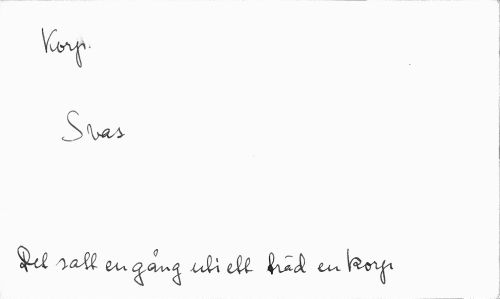 Korp.
Svas
Det satt en gång uti ett träd en korp